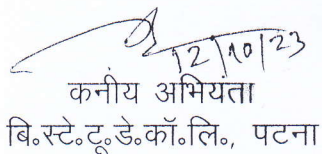 12/10/23
कनीय अभियंता
बि॰स्टे॰टू॰डे॰कॉ॰लि॰, पटना